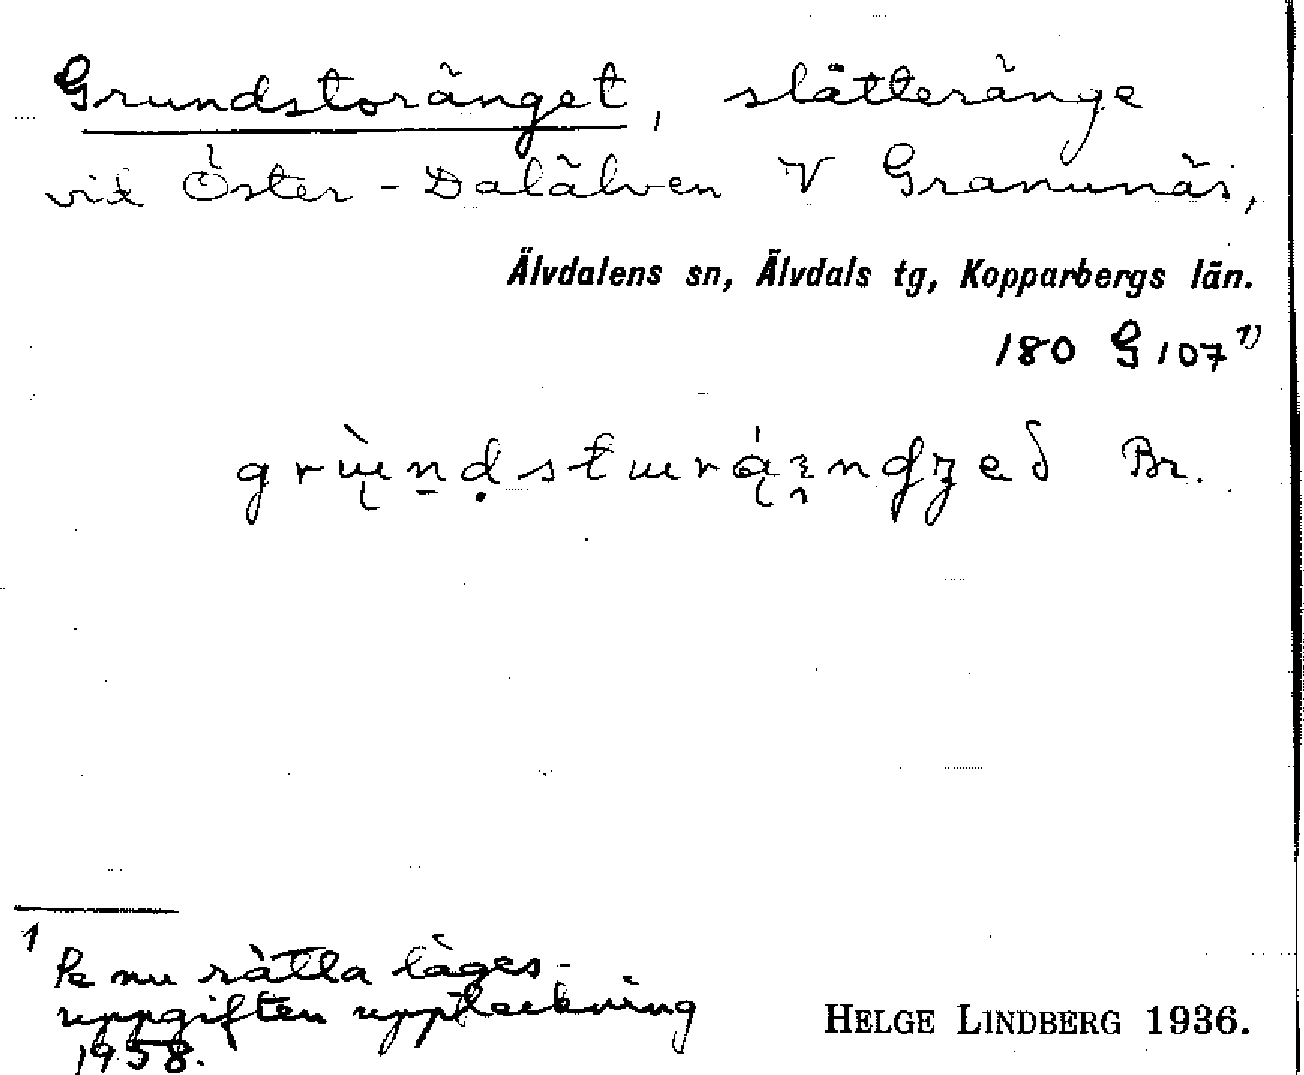 Grundstoränget, slätteränge
vid Öster-Dalälven V Granunäs,
Älvdalens sn, Älvdals tg, Kopparbergs län.
180 G 107 1)
Br.
1
nu rätta läges-
uppgiften uppteckning
1958.
HELGE LINDBERG 1936.